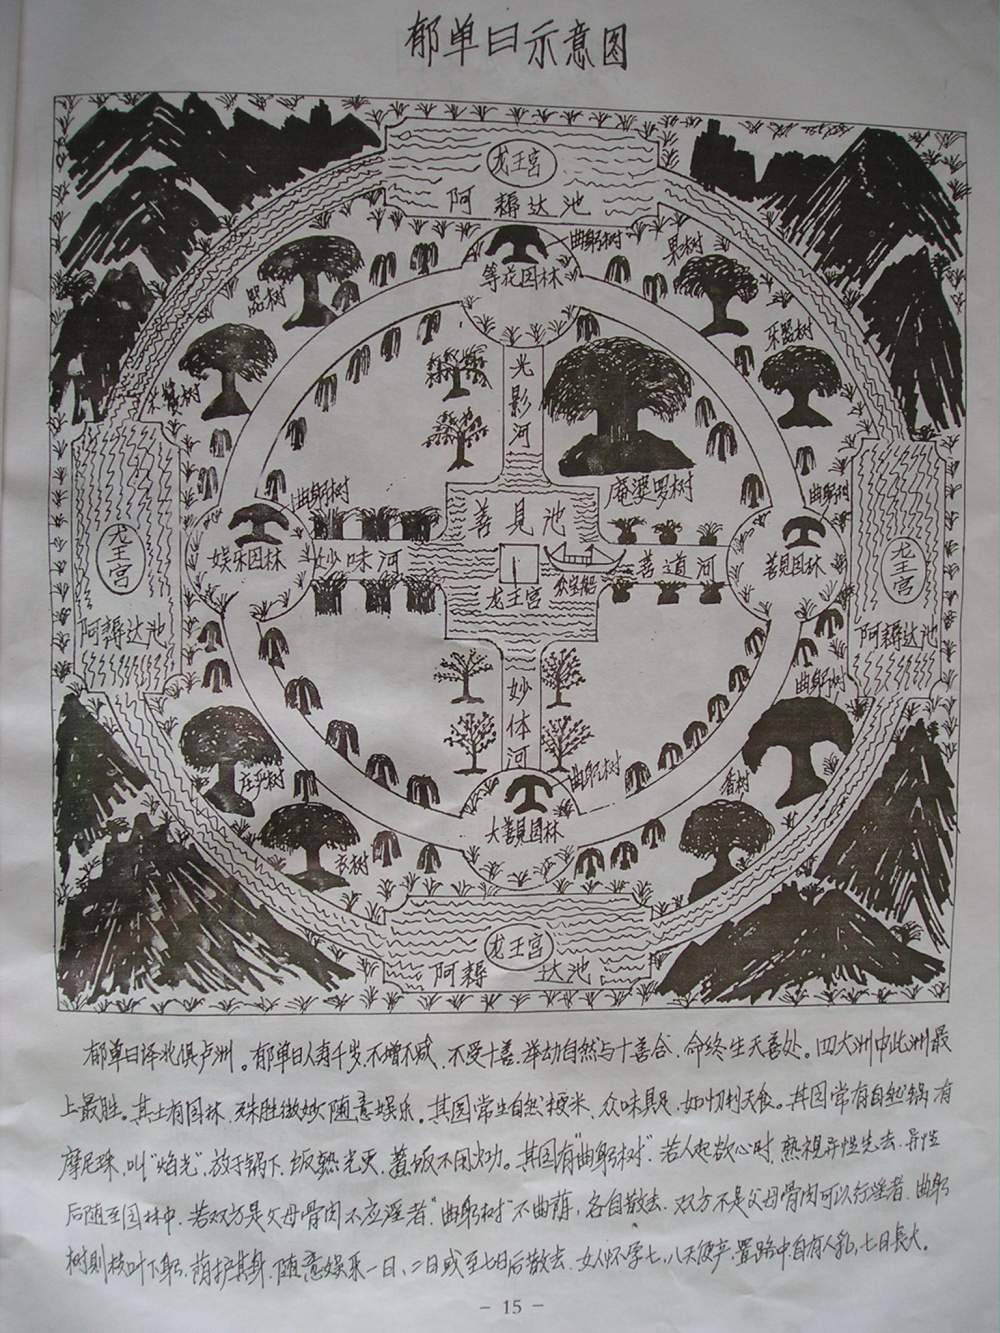 郁单曰示意图
龙王宫
阿耨达池
曲躬树
果树
等花园林
器树
乐器树
光影河
庵婆罗树
曲躬树
曲躬树
善見池
娱乐园林
妙味河
龙王宫
众宝船
善道河
善見园林
龙王宫
阿耨达池
龙王宫
阿耨达池
曲躬树
妙体河
庄严树
曲躬树
香树
大善見园林
衣树
龙王宫
阿耨达池
郁单曰译北俱卢洲。郁单曰人寿千岁,不增不减,不受十善,举动自然与十善合,命终生天善处。四大洲中此洲最
上最胜。其土有园林,殊胜微妙随意娱乐。其国常生自然粳米,众味具足,如忉利天食。其国常有自然锅有
摩尼珠,叫"焰光",放于锅下,饭熟光灭,蒸饭不用火功。其国有"曲躬树",若人起欲心时,熟视异性先去,异性
后随至园林中,若双方是父母骨肉不应淫者,"曲躬树"不曲荫,各自散去,双方不是父母骨肉可以行淫者,曲躬
树则枝叶下躬,荫护其身,随意娱乐一日、二日或至七日后散去,女人怀孕七、八天便产,置路中自有人乳,七日長大。
- 15 -